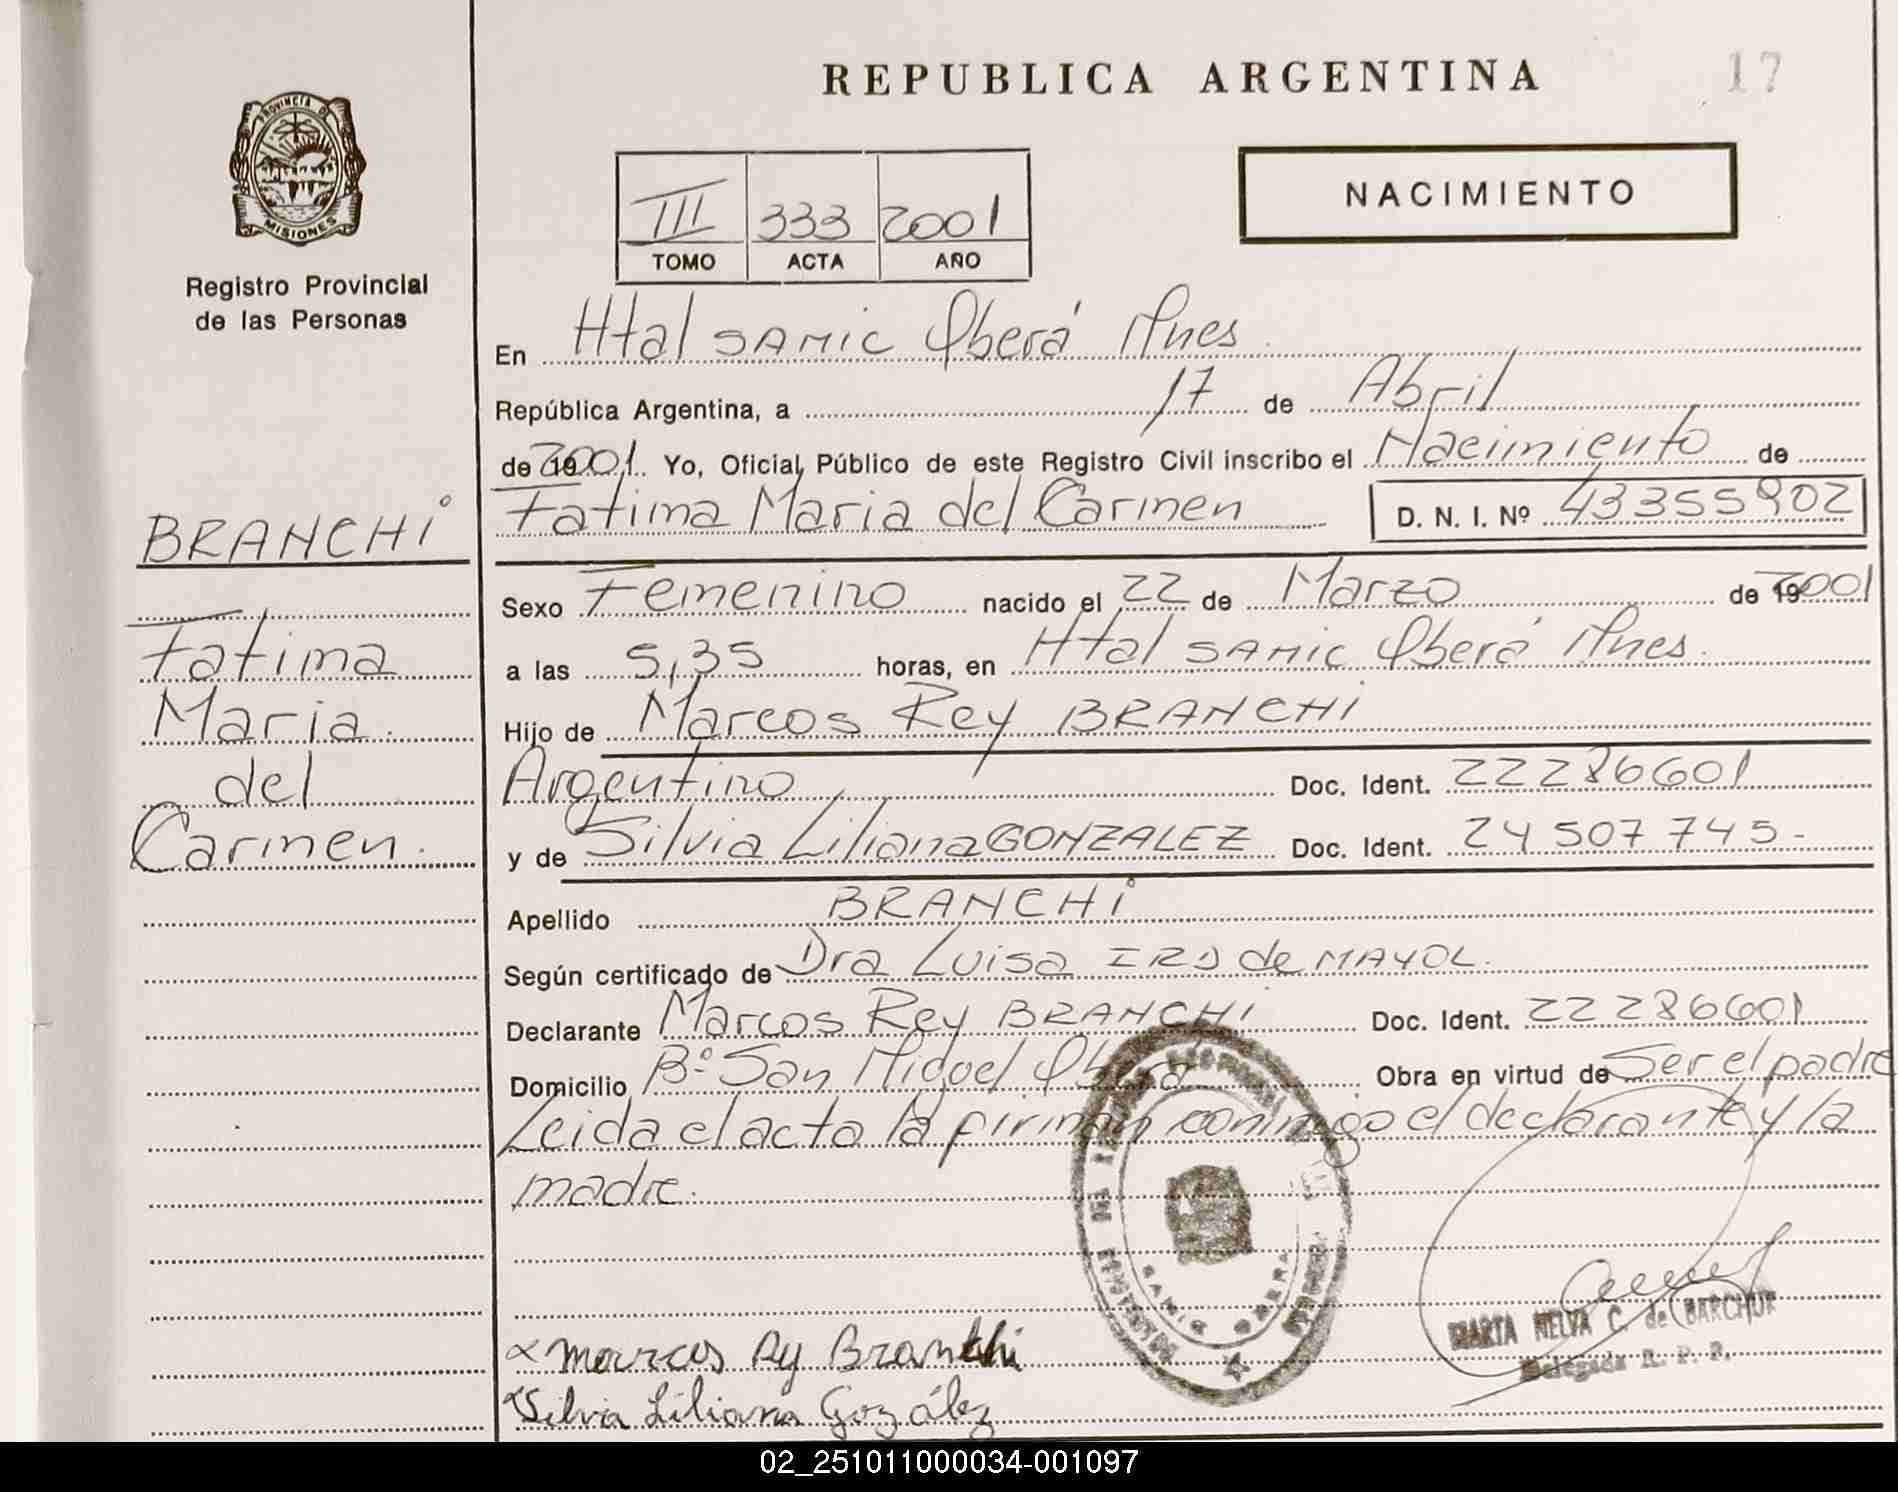 REPUBLICA ARGENTINA
17
PROVINCIA DE
MISIONES
Registro Provincial
de las Personas
NACIMIENTO
III 333 2001
TOMO ACTA AÑO
En Htal SAMIC Oberá Mnes.
República Argentina, a 17 de Abril
de 2001. Yo, Oficial Público de este Registro Civil inscribo el Nacimiento de
Fatima Maria del Carmen D. N. I. Nº 43355902
BRANCHi
Fatima
Maria
del
Carmen.
Sexo Femenino nacido el 22 de Marzo de 2001
a las 5,35 horas, en Htal SAMIC Oberá Mnes.
Hijo de Marcos Rey BRANCHI
Argentino, Doc. Ident. 22286601
y de Silvia Liliana GONZALEZ Doc. Ident. 24507745-
Apellido BRANCHi
Según certificado de Dra Luisa de MAYOL.
Declarante Marcos Rey BRANCHI Doc. Ident. 22286601
Domicilio Bº San Miguel Oberá Obra en virtud de Ser el padre
Leida el acta la firman conmigo el declarante y la
madre.
Marcos Ry Branchi
Silvia Liliana Gozález
MARTA NELVA C. de BARCHUK
Delegada R. P. P.
02_251011000034-001097